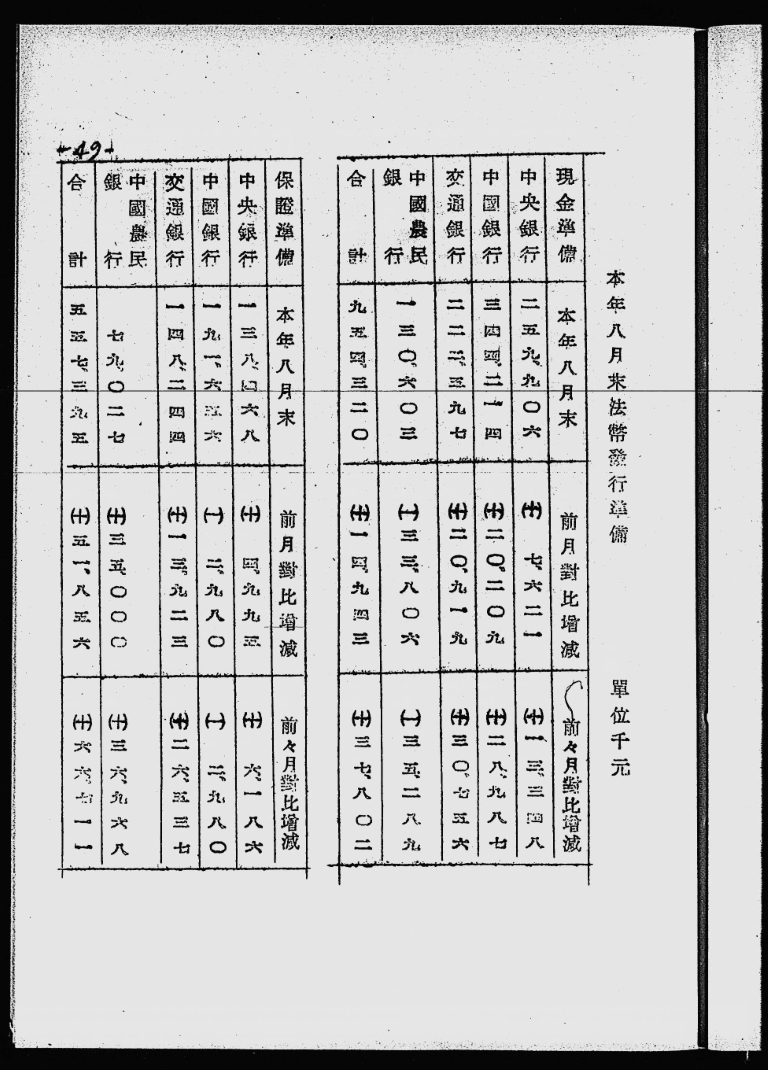 -49-
本年八月末法幣發行準備 單位千元
現金準備 本年八月末 前月對比增減 前々月對比增減
中央銀行 二五九、九〇六 (+) 七、六二一 (+) 一三、三四八
中國銀行 三四四、二一四 (+) 二〇、二〇九 (+) 二八、九八七
交通銀行 二二二、五九七 (+) 二〇、九一九 (+) 三〇、七五六
中國農民銀行 一三〇、六〇三 (-) 三三、八〇六 (-) 三五、二八九
合計 九五四、三二〇 (+) 一四、九四三 (+) 三七、八〇二
保證準備 本年八月末 前月對比增減 前々月對比增減
中央銀行 一三八、四六八 (+) 四、九九五 (+) 六、一八六
中國銀行 一九一、六五六 (-) 二、九八〇 (-) 二、九八〇
交通銀行 一四八、二四四 (+) 一三、九二三 (+) 二六、五三七
中國農民銀行 七九、〇二七 (+) 三五、〇〇〇 (+) 三六、九六八
合計 五五七、三九五 (+) 五一、八五六 (+) 六六、七一一